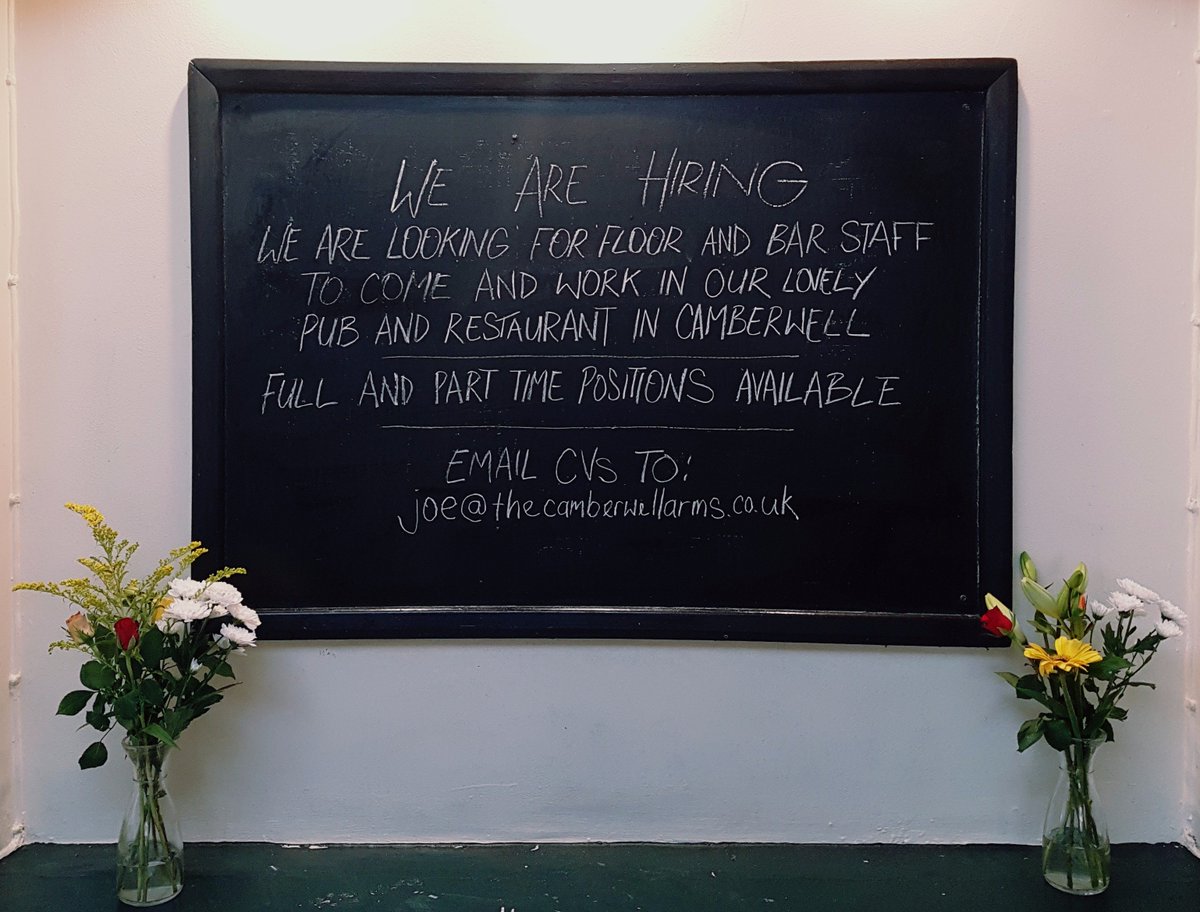 WE ARE HIRING
WE ARE LOOKING FOR FLOOR AND BAR STAFF
TO COME AND WORK IN OUR LOVELY
PUB AND RESTAURANT IN CAMBERWELL
FULL AND PART TIME POSITIONS AVAILABLE
EMAIL CVs TO:
joe@thecamberwellarms.co.uk